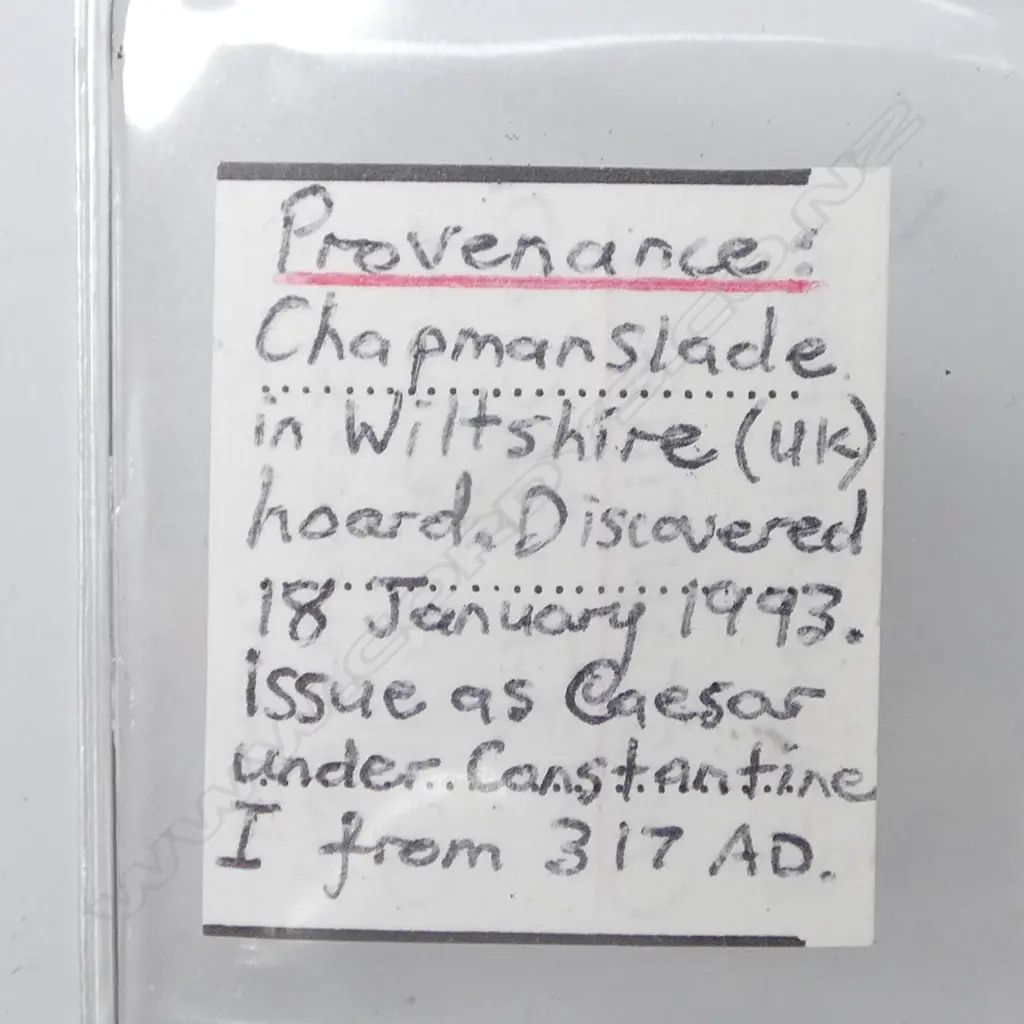 Provenance:
Chapmanslade
in Wiltshire (UK)
hoard. Discovered
18 January 1993.
issue as Caesar
under Constantine
I from 317 AD.